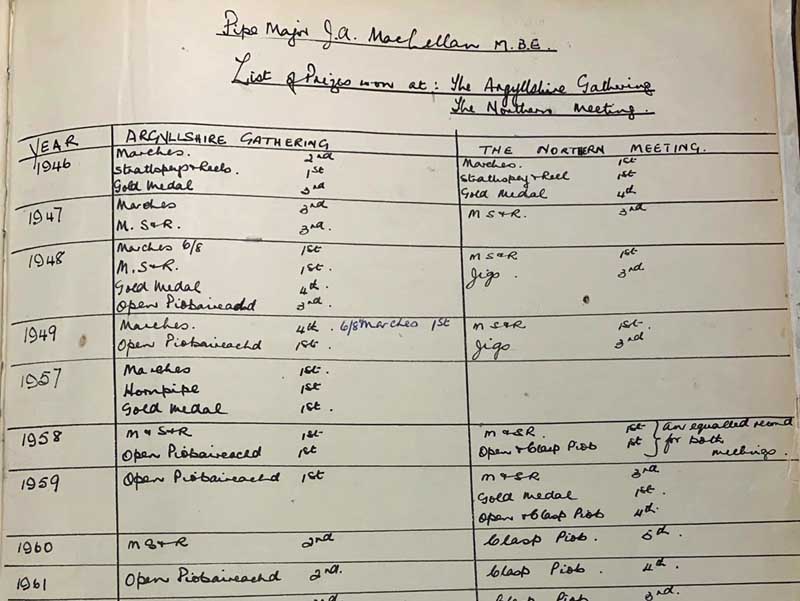 Pipe Major J.A. MacLellan M.B.E.
List of Prizes won at: The Argyllshire Gathering
The Northern Meeting.
YEAR ARGYLLSHIRE GATHERING THE NORTHERN MEETING.
1946 Marches. 2nd Marches. 1st
Strathspey & Reels. 1st Strathspey & Reel 1st
Gold Medal 3rd Gold Medal 4th
1947 Marches 3rd M S & R. 3rd
M. S & R. 3rd.
1948 Marches 6/8 1st M S & R 1st
M. S & R. 1st. Jigs. 3rd.
Gold Medal 4th.
Open Piobaireachd 3rd.
1949 Marches. 4th. 6/8 Marches 1st M S & R 1st.
Open Piobaireachd 1st. Jigs 3rd
1957 Marches 1st.
Hornpipe 1st
Gold Medal 1st.
1958 M & S & R 1st M & SR. 1st } An equalled record
Open Piobaireachd 1st Open & Clasp Piob 1st for both
meetings.
1959 Open Piobaireachd 1st M & SR 3rd
Gold Medal 1st.
Open & Clasp Piob 4th
1960 M S & R 2nd Clasp Piob. 5th.
1961 Open Piobaireachd 2nd. Clasp Piob. 4th.
Clasp Piob 3rd